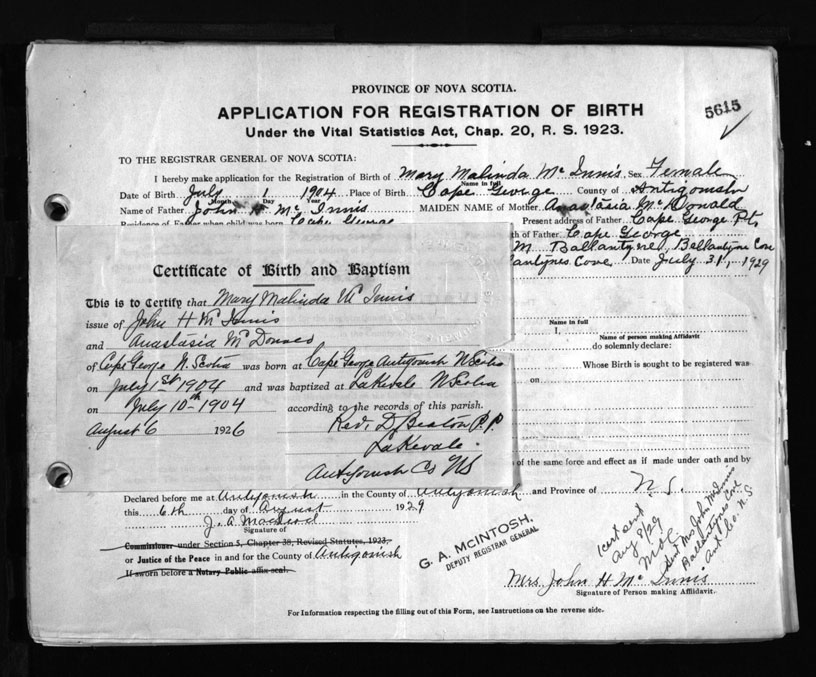 PROVINCE OF NOVA SCOTIA.
APPLICATION FOR REGISTRATION OF BIRTH
Under the Vital Statistics Act, Chap. 20, R. S. 1923.
5615
TO THE REGISTRAR GENERAL OF NOVA SCOTIA:
I hereby make application for the Registration of Birth of Mary Malinda Mc Innis Sex Female
Name in full
Date of Birth July 1 1904 Place of Birth Cape George County of Antigonish
Month Day Year
Name of Father John H Mc Innis MAIDEN NAME of Mother Anastasia McDonald
Residence of Father when child was born Cape George Present address of Father Cape George Pt.
th of Father Cape George
M Ballantyne, Ballantyne Cove
antynes Cove Date July 31, 1929
Certificate of Birth and Baptism
This is to Certify that Mary Malinda Mc Innis
issue of John H Mc Innis
and Anastasia Mc Donald
of Cape George N. Scotia was born at Cape George Antigonish N Scotia
on July 1st 1904 and was baptized at Lakevale N Scotia
on July 10th 1904 according to the records of this parish.
August 6 1926 Rev. D Beaton P.P.
Lakevale
Antigonish Co NS
Name in full
I,
Name of person making Affidavit
do solemnly declare:
Whose Birth is sought to be registered was
on
of the same force and effect as if made under oath and by
Declared before me at Antigonish in the County of Antigonish and Province of N. S.
this 6th day of August 1929
J. A. Macleod
Signature of
Commissioner under Section 5, Chapter 38, Revised Statutes, 1923,
or Justice of the Peace in and for the County of Antigonish
If sworn before a Notary Public affix seal.
G. A. MCINTOSH.
DEPUTY REGISTRAR GENERAL
1 cert sent
Aug 8/29
Sent Mrs John McInnis
Ballantynes Cove
Ant Co. N. S
Mrs. John H Mc Innis
Signature of Person making Affidavit.
For Information respecting the filling out of this Form, see Instructions on the reverse side.